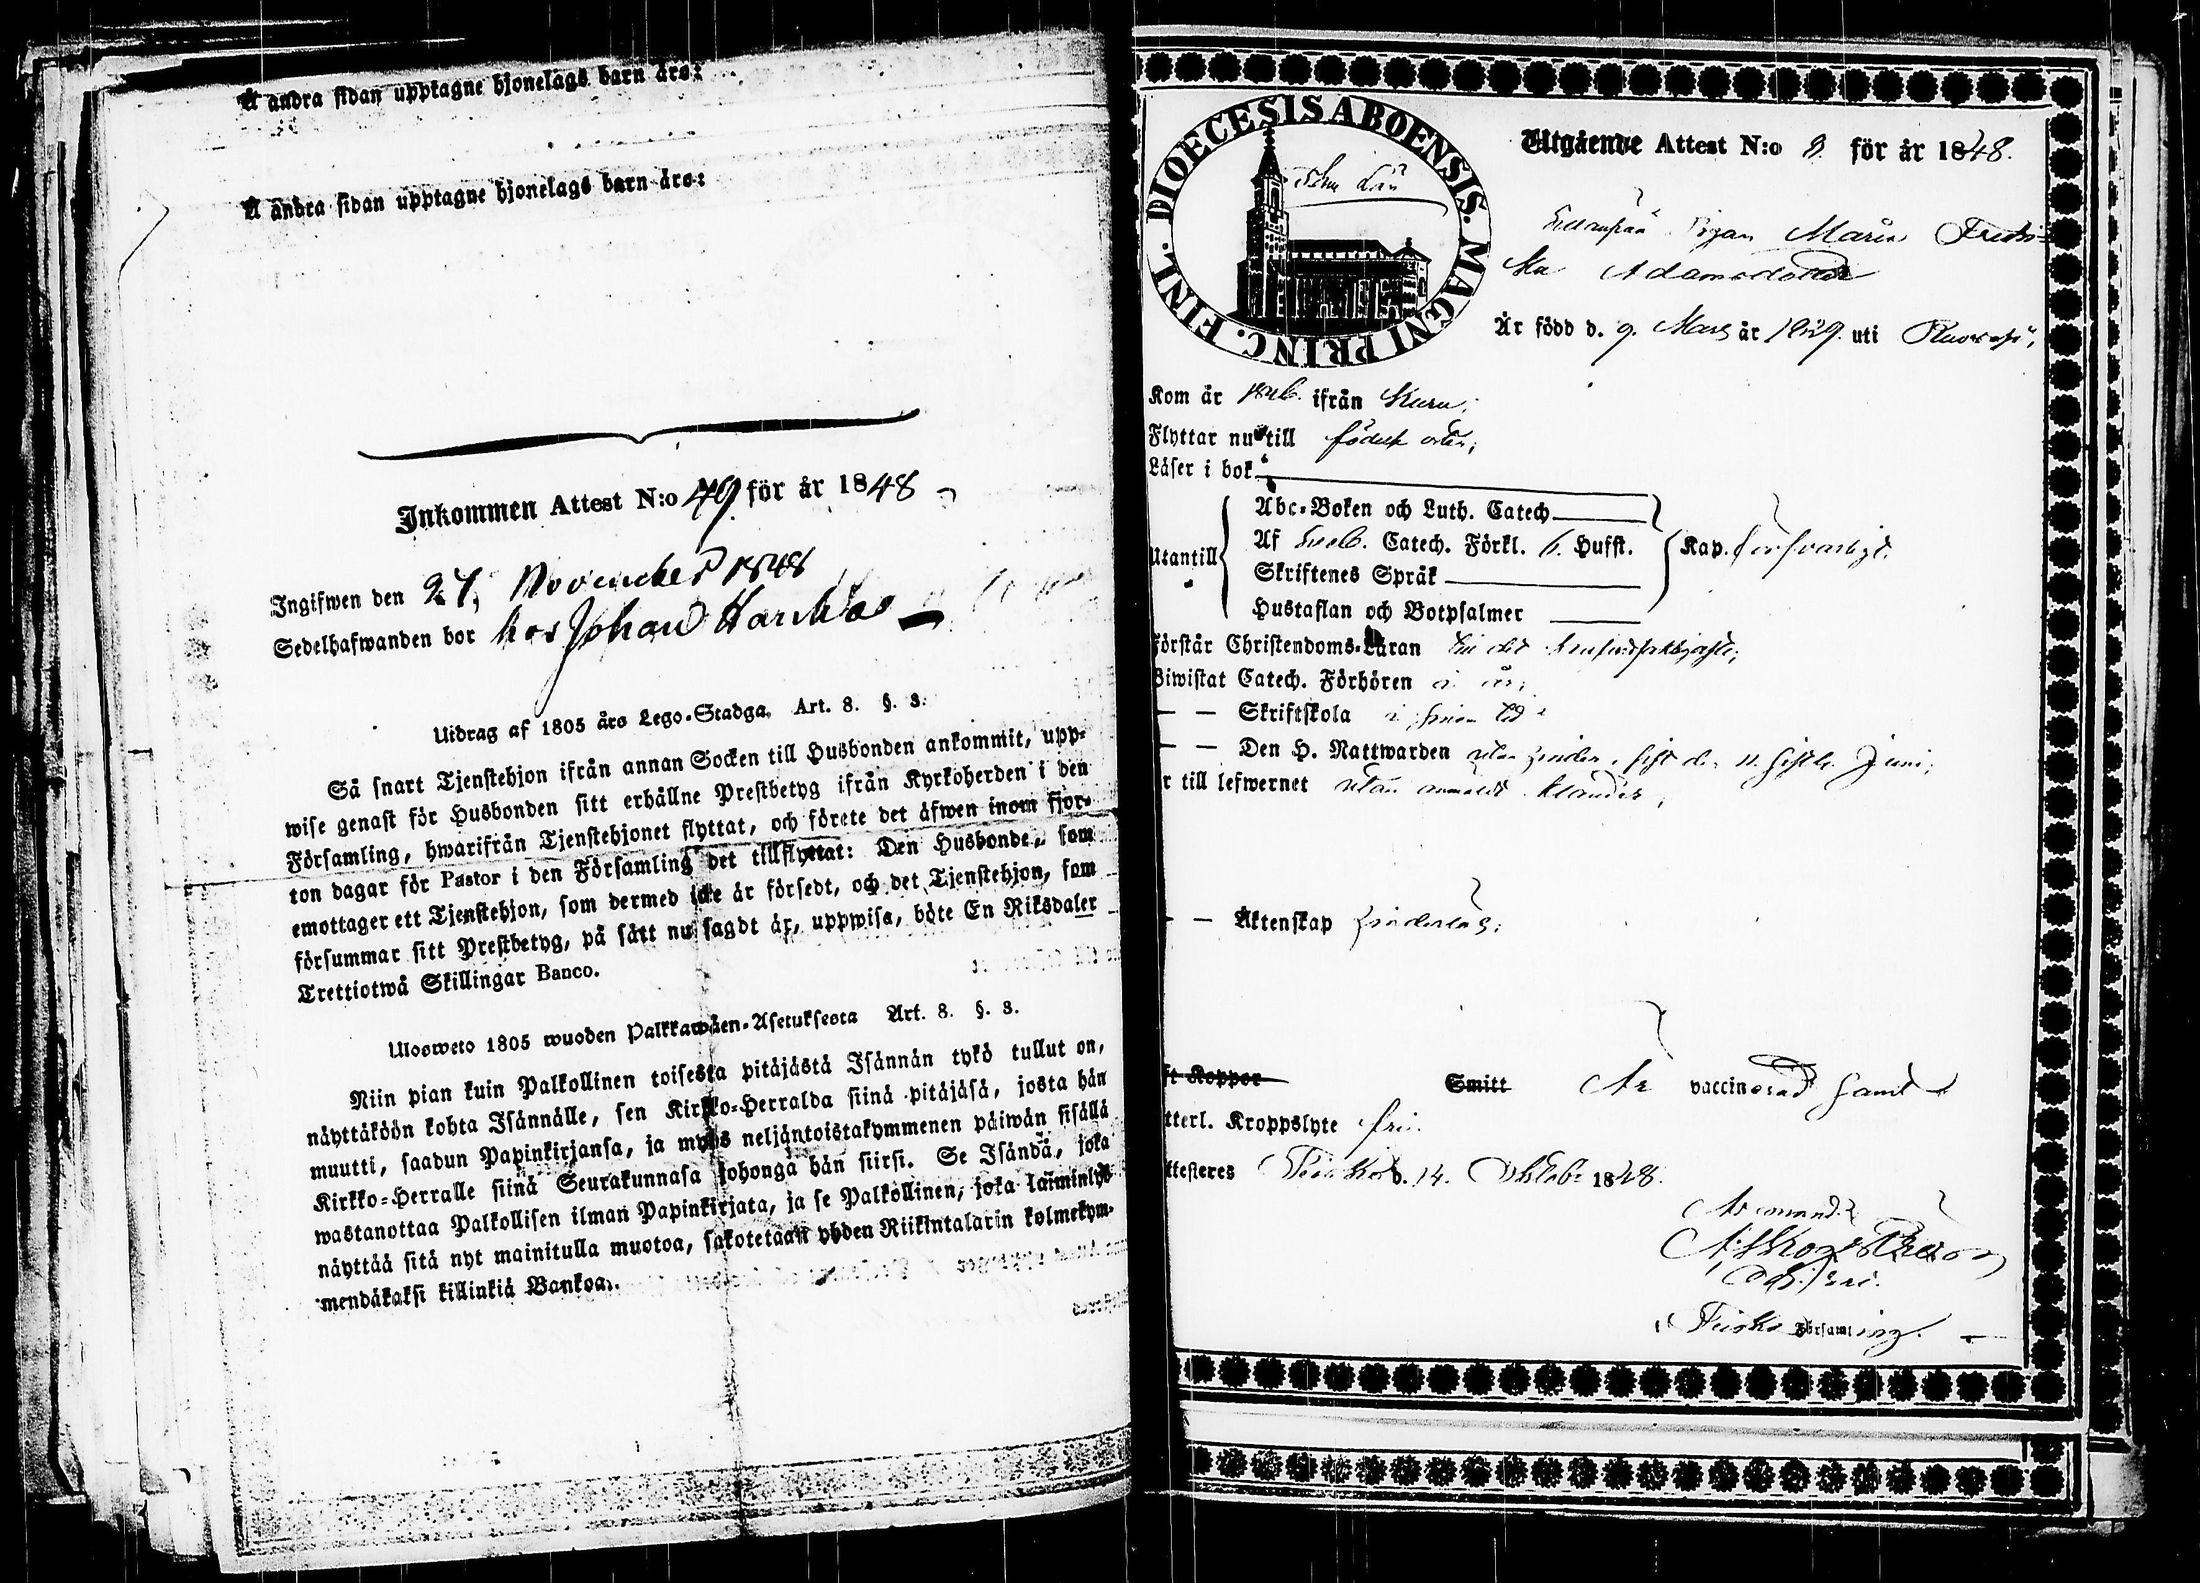 Å andra sidan upptagne hjonelags barn äro:
Å andra sidan upptagne hjonelags barn äro:
Inkommen Attest N:o 49 för år 1848
Ingifwen den 27, November 1848
Sedelhafwanden bor hos Johan
Utdrag af 1805 års Lego-Stadga, Art. 8. §. 3.
Så snart Tjenstehjon ifrån annan Socken till Husbonden ankommit, upp-
wise genast för Husbonden sitt erhållne Prestbetyg ifrån Kyrkoherden i den
Församling, hwarifrån Tjenstehjonet flyttat, och förete det äfwen inom fjor-
ton dagar för Pastor i den Församling det tillflyttat: Den Husbonde, som
emottager ett Tjenstehjon, som dermed icke är försedt, och det Tjenstehjon, som
försummar sitt Prestbetyg, på sätt nu sagdt är, uppwisa, böte En Riksdaler
Trettiotwå Skillingar Banco.
Ulosweto 1805 wuoden Palkkawäen-Asetuksesta Art. 8. §. 3.
Niin pian kuin Palkollinen toisesta pitäjästä Isännän tykö tullut on,
näyttäköön kohta Isännälle, sen Kirkko-Herralda siinä pitäjäsä, josta hän
muutti, saadun Papinkirjansa, ja myös neljäntoistakymmenen päiwän sisällä
Kirkko-Herralle siinä Seurakunnasa johonga hän siirsi. Se Isändä, joka
wastanottaa Palkollisen ilman Papinkirjata, ja se Palkollinen, joka laiminlyö
näyttää sitä nyt mainitulla muotoa, sakotetaan yhden Riikintalarin kolmekym-
mendäkaksi killinkiä Bankoa.
DIOECESIS ABOENSIS. MAGNI PRINC. FINL.
Län
Utgående Attest N:o 8. för år 1848.
Pigan Maria Fredri-
ka Adamsdotter
Är född d. 9. Mars år 1829. uti Ruovesi,
Kom år 1846. ifrån Kuru;
Flyttar nu till födelse orten;
Läser i bok
Utantill
Abc-Boken och Luth. Catech
Af Sveb. Catech. Förkl. 6. Hufst.
Kap. försvarligt.
Skriftenes Språk
Hustaflan och Botpsalmer
Förstår Christendoms-Läran
Biwistat Catech. Förhören i år;
— — Skriftskola i sinom tid
— — Den H. Nattwarden utan hinder, sist d. 11. sistl. Juni;
r till lefwernet utan anmäldt klander;
— — Äktenskap hinderlös;
ft Koppor Smitt Är vaccinerad samt
tterl. Kroppslyte fri.
ttesteres Teisko d. 14. Octob. 1848.
Församling.